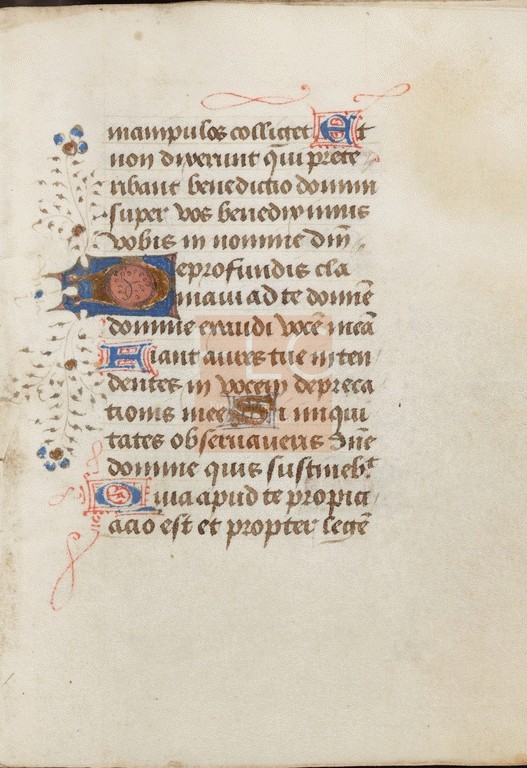 manipulos colliget Et
non dixerunt qui prete
ribant benedictio domini
super vos benediximus
vobis in nomine dm̄
Deprofundis cla
maui ad te domīe
domine exaudi vocē meā
Fiant aures tue inten
dentes in vocem depreca
tionis mee Si iniqui
tates obseruaueris dn̄e
domine quis sustinebᵗ
Quia apud te propici
acio est et propter legē
LC